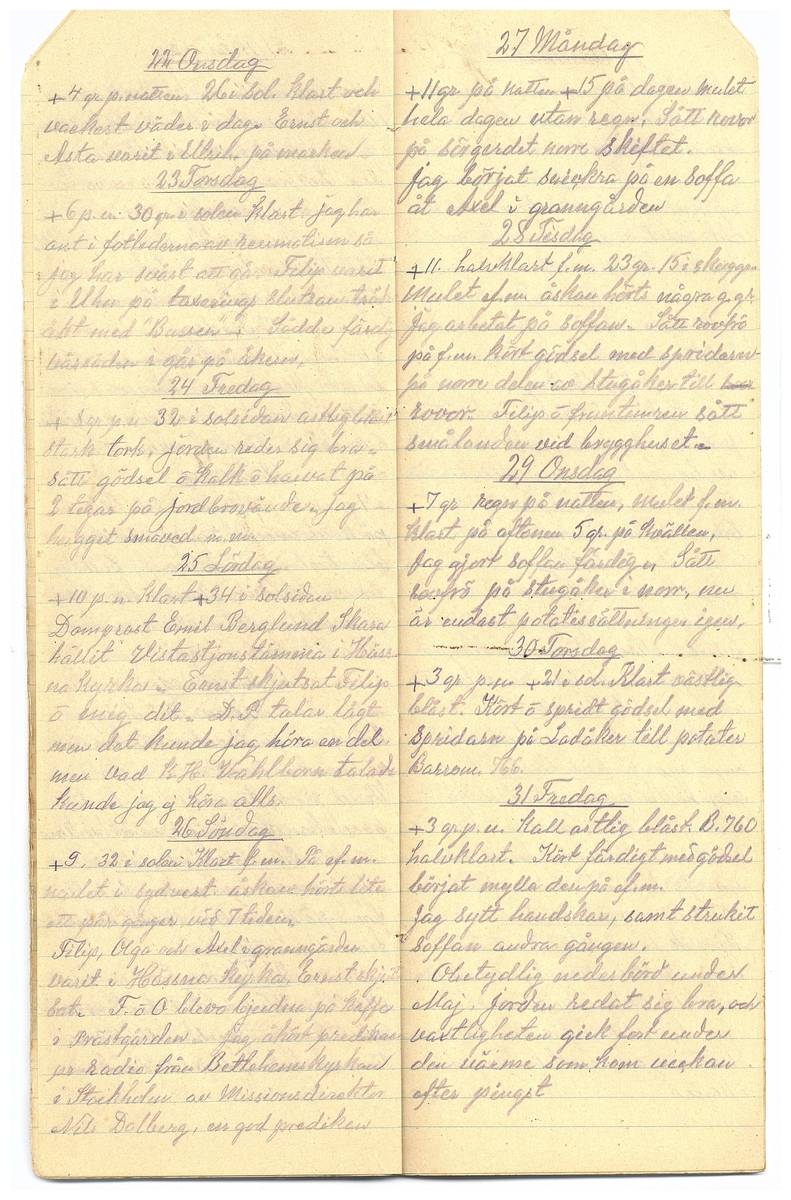 22 Onsdag
+4 gr p. natten. 26 i sol. klart och
vackert väder i dag. Ernst och
Asta varit i Ulrih. på marken
23 Torsdag
+6 p. n. 30 gr i solen klart. jag har
ont i fotlederna av reumatism så
jag har svårt att gå. Filip varit
i Uhn på taxerings
åkt med "Bussen". Sådde färdig
vårsäden i går på åkern.
24 Fredag
+8 gr p. n. 32 i solsidan ostlig blåst
stark tork, jorden reder sig bra.
sått gödsel o kalk o harvat på
2 tegar på jordbrovände. jag
huggit småved m.m.
25 Lördag
+10 p. n. Klart +34 i solsidan
Domprost Emil Berglund Skara
hållit Vistastjonstämma i Häss-
na Kyrka. Ernst skjutsat Filip
o mig dit. D.P. talar lågt
men det kunde jag höra en del.
men vad K.H. Wahlborn talade
kunde jag ej höra alls.
26 Söndag
+9. 32 i solen Klart f.m. På ef.m.
mulet i sydvest åskan hörts lite
ett par gånger vid 7 tiden.
Filip, Olga och Axel i granngården
varit i Hössna kyrka, Ernst skj.
bat. F. o O blevo bjudna på kaffe
i Prästgården. jag åhört predikan
pr radio från Betlehemskyrkan
i Stockholm av Missionsdirektor
Nils Dalberg, en god predikan
27 Måndag
+11 gr på natten +15 på dagen mulet
hela dagen utan regn. Sått rovor
på börgerdet norre skiftet.
jag börjat snickra på en soffa
åt Axel i granngården
28 Tisdag
+11. halvklart f.m. 23 gr. 15 i skuggan
Mulet ef.m. åskan hörts några g.gr.
jag arbetat på soffan. Sått rovfrö
på f.m. kört gödsel med spridarn
på norre delen av stugåker till
rovor. Filip o fruntimren sått
smålanden vid brygghuset.
29 Onsdag
+7 gr regn på natten, mulet f.m.
klart på aftonen 5 gr. på kvällen,
Jag gjort soffan färdig. Sått
rovfrö på stugåker i norr, nu
är endast potatissättningen igen.
30 Torsdag
+3 gr p.n. +21 i sol. Klart västlig
blåst. Kört o spridt gödsel med
spridarn på Ladåker till potater
Barrom. 766.
31 Fredag
+3 gr. p. n. Kall ostlig blåst. B. 760
halvklart. Kört färdigt med gödsel
börjat mylla den på ef.m.
jag sytt handskar, samt struket
soffan andra gången.
Obetydlig nederbörd under
Maj. jorden redat sig bra, och
växtligheten gick fort under
den värme som kom veckan
efter pingst